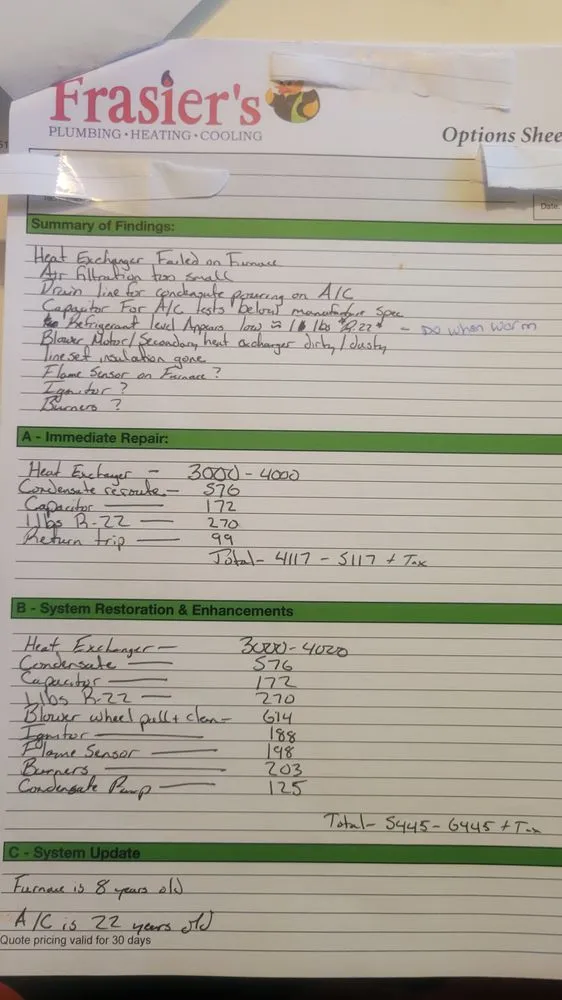 Frasier's
PLUMBING • HEATING • COOLING
Options Shee
Date:
Summary of Findings:
Heat Exchanger Failed on Furnace
Air filtration too small
Drain line for condensate pouring on A/C
Capacitor For A/C tests below manufacture spec
Refrigerant level Appears low ≈ 1 lbs *R-22* - Do when warm
Blower Motor/Secondary heat exchanger dirty/dusty
lineset insulation gone
Flame Sensor on Furnace?
Ignitor?
Burners?
A - Immediate Repair:
Heat Exchanger - 3000 - 4000
Condensate reroute - 576
Capacitor - 172
1 lbs R-22 - 270
Return trip - 99
Total - 4117 - 5117 + Tax
B - System Restoration & Enhancements
Heat Exchanger - 3000 - 4000
Condensate - 576
Capacitor - 172
1 lbs R-22 - 270
Blower wheel pull + clean - 614
Ignitor - 188
Flame Sensor - 198
Burners - 203
Condensate Pump - 125
Total - 5445 - 6445 + Tax
C - System Update
Furnace is 8 years old
A/C is 22 years old
Quote pricing valid for 30 days